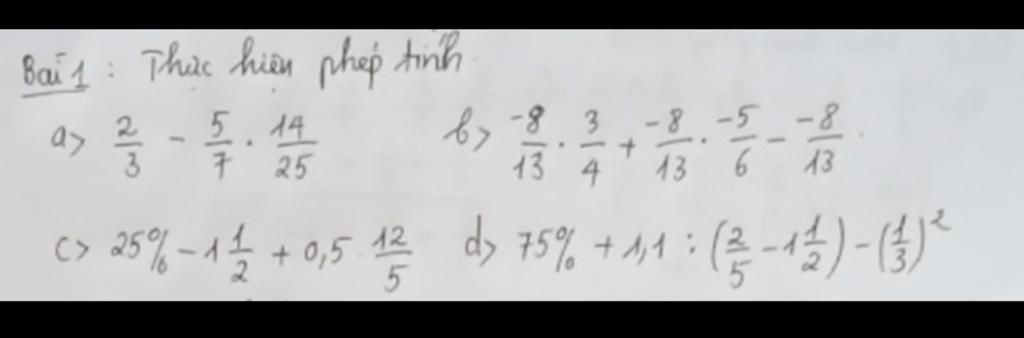 Bài 1 : Thực hiện phép tính
a> 2/3 - 5/7 . 14/25 b> -8/13 . 3/4 + -8/13 . -5/6 - -8/13 .
c> 25% - 1 1/2 + 0,5 . 12/5 d> 75% + 1,1 : (2/5 - 1 1/2) - (1/3)²